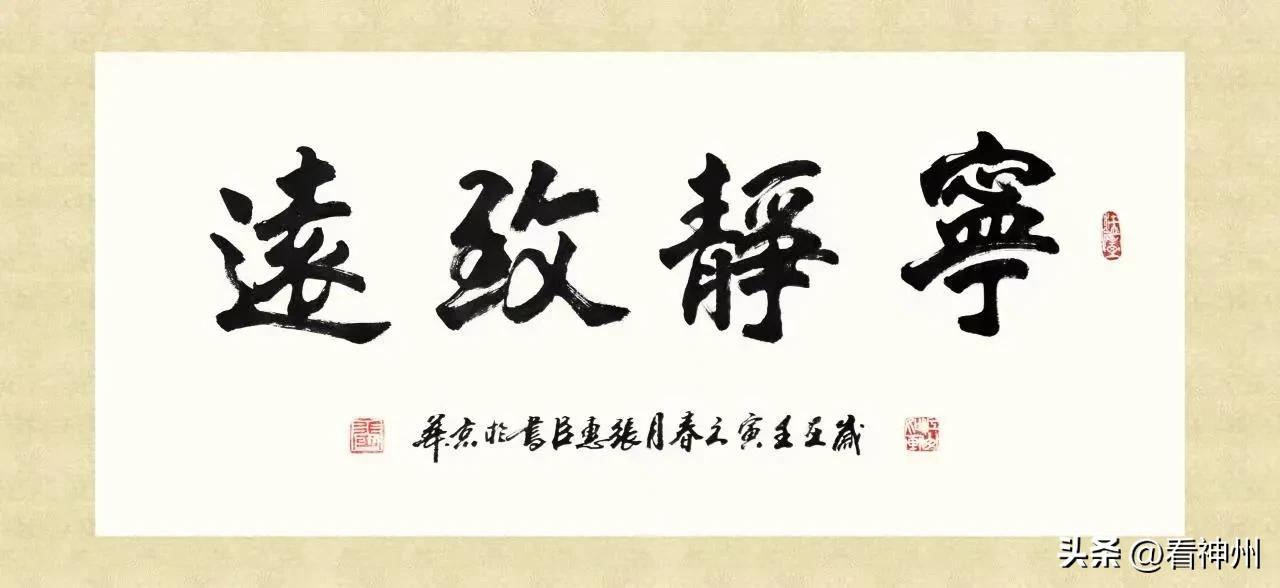 寧靜致遠
歲在壬寅之春月張惠臣書於京華
头条 @看神州